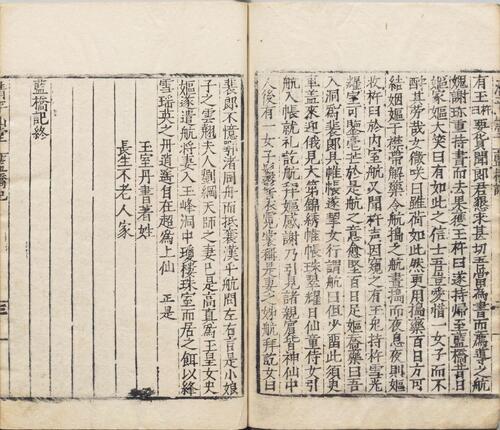 有玉杵要貨聞郎君懇求甚切吾當爲書而薦導之航
媿謝珍重持書而去果獲玉杵曰遂持歸至藍橋昔日
嫗家嫗大笑曰有如此之信士吾豈愛惜一女子而不
酧其勞哉女微咲曰雖尚如此然更用搗藥百日方可
結姻嫗于襟帶解藥令航搗之航晝搗而夜息夜則嫗
收杵臼於內室航又聞杵声因窺之有玉兔持杵雪光
耀室可鑒毫芒於是航之意愈堅百日足嫗吞藥曰吾
入洞爲裴郎具帷帳遂挈女行謂航曰但少留此須臾
車盖來迎俄見大第錦綉帷帳珠翠耀日仙童侍女引
航入帳就礼訖航拜嫗感謝乃引見諸親賓皆神仙中
人後有一女子鬟髻衣霓裳稱是妻之姊航拜訖女曰
裴郎不憶鄂渚同舟而抵襄漢乎航問左右言是小娘
子之雲翹夫人劉綱天師之妻已是高真爲玉皇女史
嫗遂遣航將妻入玉峰洞中瓊樓珠室而居之餌以絳
雪瑤英之丹逍遙自在超爲上仙 正是
玉室丹書著姓
長生不老人家
藍橋記終